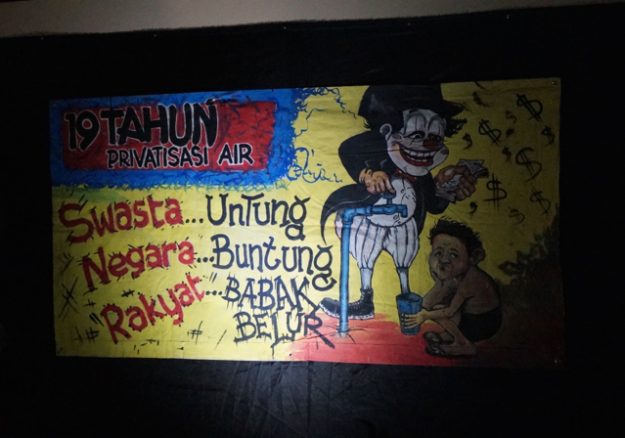 19 TAHUN
PRIVATISASI AIR
Swasta...Untung
Negara...Buntung
Rakyat...BABAK
BELUR